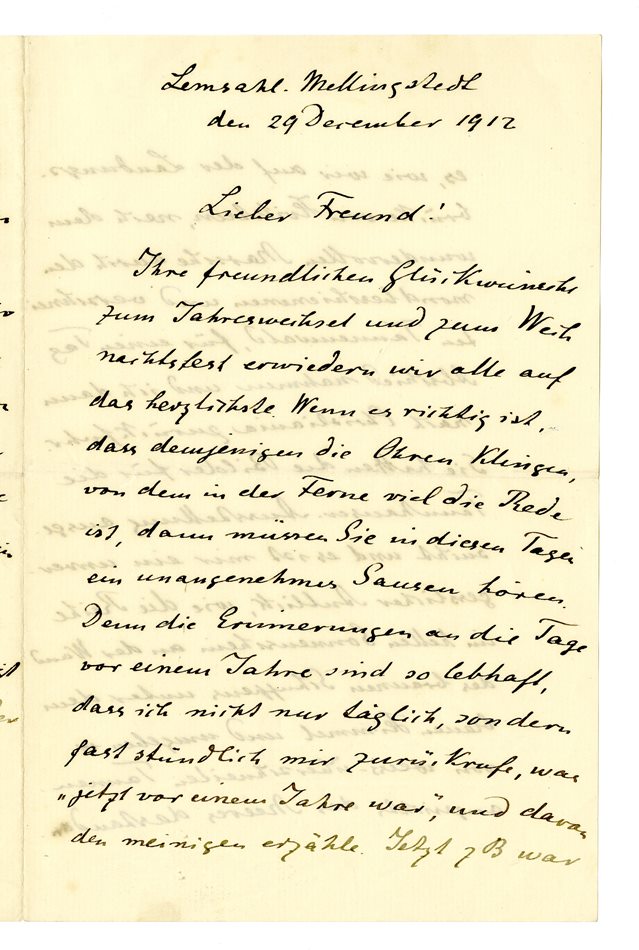 Lemsahl-Mellingstedt
den 29 December 1912
Lieber Freund!
Ihre freundlichen Glückwünsche
zum Jahreswechsel und zum Weih
nachtsfest erwiedern wir alle auf
das herzlichste. Wenn es richtig ist,
dass demjenigen die Ohren klingen,
von dem in der Ferne viel die Rede
ist, dann müssen Sie in diesen Tagen
ein unangenehmes Sausen hören.
Denn die Erinnerungen an die Tage
vor einem Jahre sind so lebhaft,
dass ich nicht nur täglich, sondern
fast stündlich mir zurückrufe, was
„jetzt vor einem Jahre war", und davon
den meinigen erzähle. Jetzt z B war